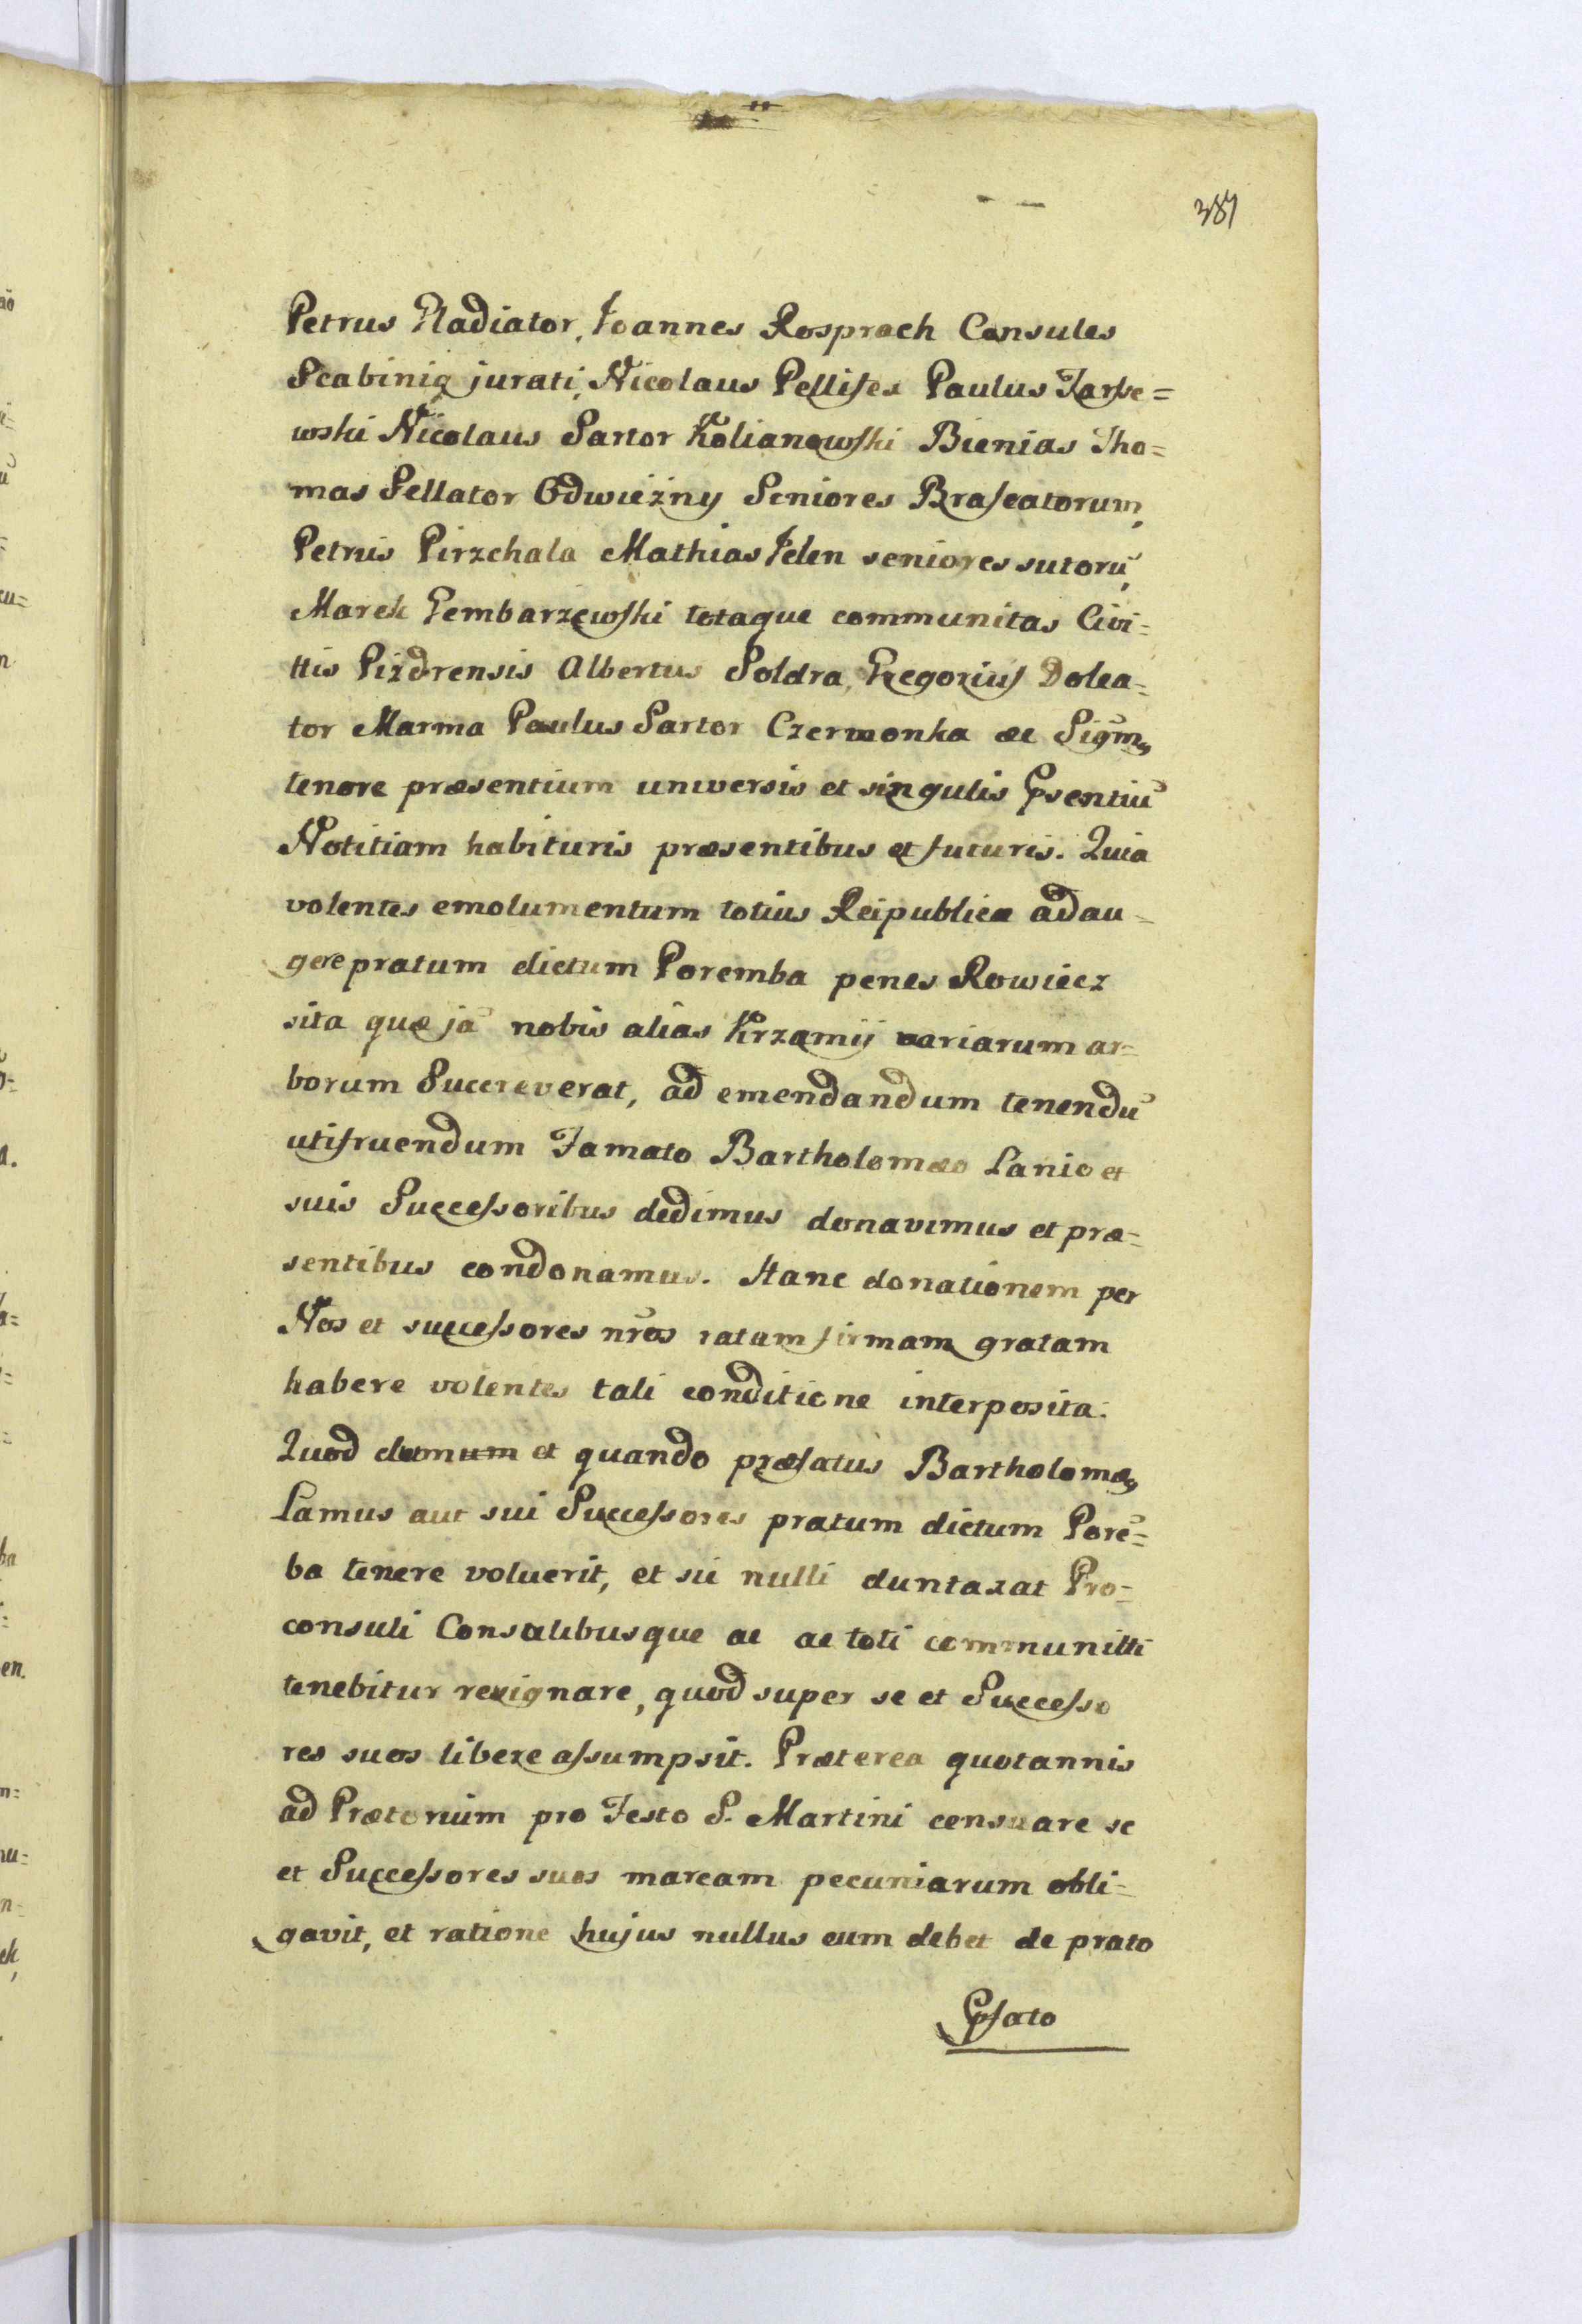 387
Petrus Gladiator, Joannes Rosprach Consules
Scabiniq jurati, Nicolaus Pellifex Paulus Jarse=
wski Nicolaus Sartor Kolianowski Bienias Tho=
mas Sellator Odwiezny Seniores Braseatorum,
Petrus Pirzchala Mathias Jelen seniores sutorū,
Marek Gembarzewski totaque communitas Civi=
ttis Pizdrensis Albertus Soldra, Gregorius Dolea=
tor Marma Paulus Sartor Czermonka ac
tenore præsentium universis et singulis Psentiū
Notitiam habituris præsentibus et futuris. Quia
volentes emolumentum totius Reipublicæ adau=
gere pratum dictum Poremba penes Rowiecz
sita quæ jā nobis alias Krzamij variarum ar=
borum Succreverat, ad emendandum tenendū
utifruendum Famato Bartholomæo Lanio et
suis Successoribus dedimus donavimus et præ=
sentibus condonamus. Hanc donationem per
Nos et successores nr̄os ratam firmam gratam
habere volentes tali conditione interposita.
Quod dum et quando præfatus Bartholomæ9
Lamus aut sui Successores pratum dictum Porē=
ba tenere voluerit, et sic nulli duntaxat Pro=
consuli Consulibusque ac ac toti communitti
tenebitur resignare, quod super se et Successo
res suos libere assumpsit. Præterea quotannis
ad Prætorium pro Festo S. Martini censuare se
et Successores suos marcam pecuniarum obli=
gavit, et ratione hujus nullus eum debet de prato
Pfato